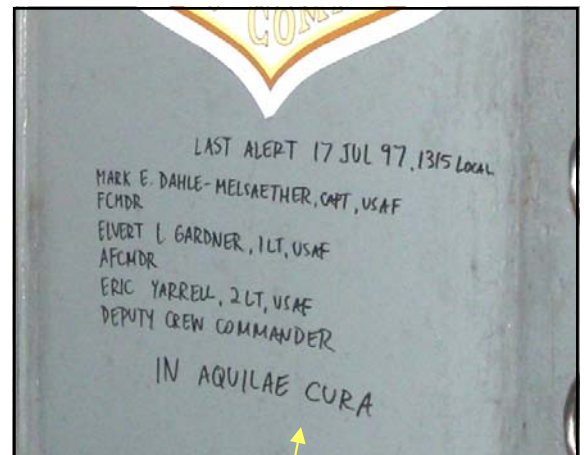 COM
LAST ALERT 17 JUL 97, 1315 LOCAL
MARK E. DAHLE-MELSAETHER, CAPT, USAF
FCMDR
ELVERT L GARDNER, 1LT, USAF
AFCMDR
ERIC YARRELL, 2LT, USAF
DEPUTY CREW COMMANDER
IN AQUILAE CURA